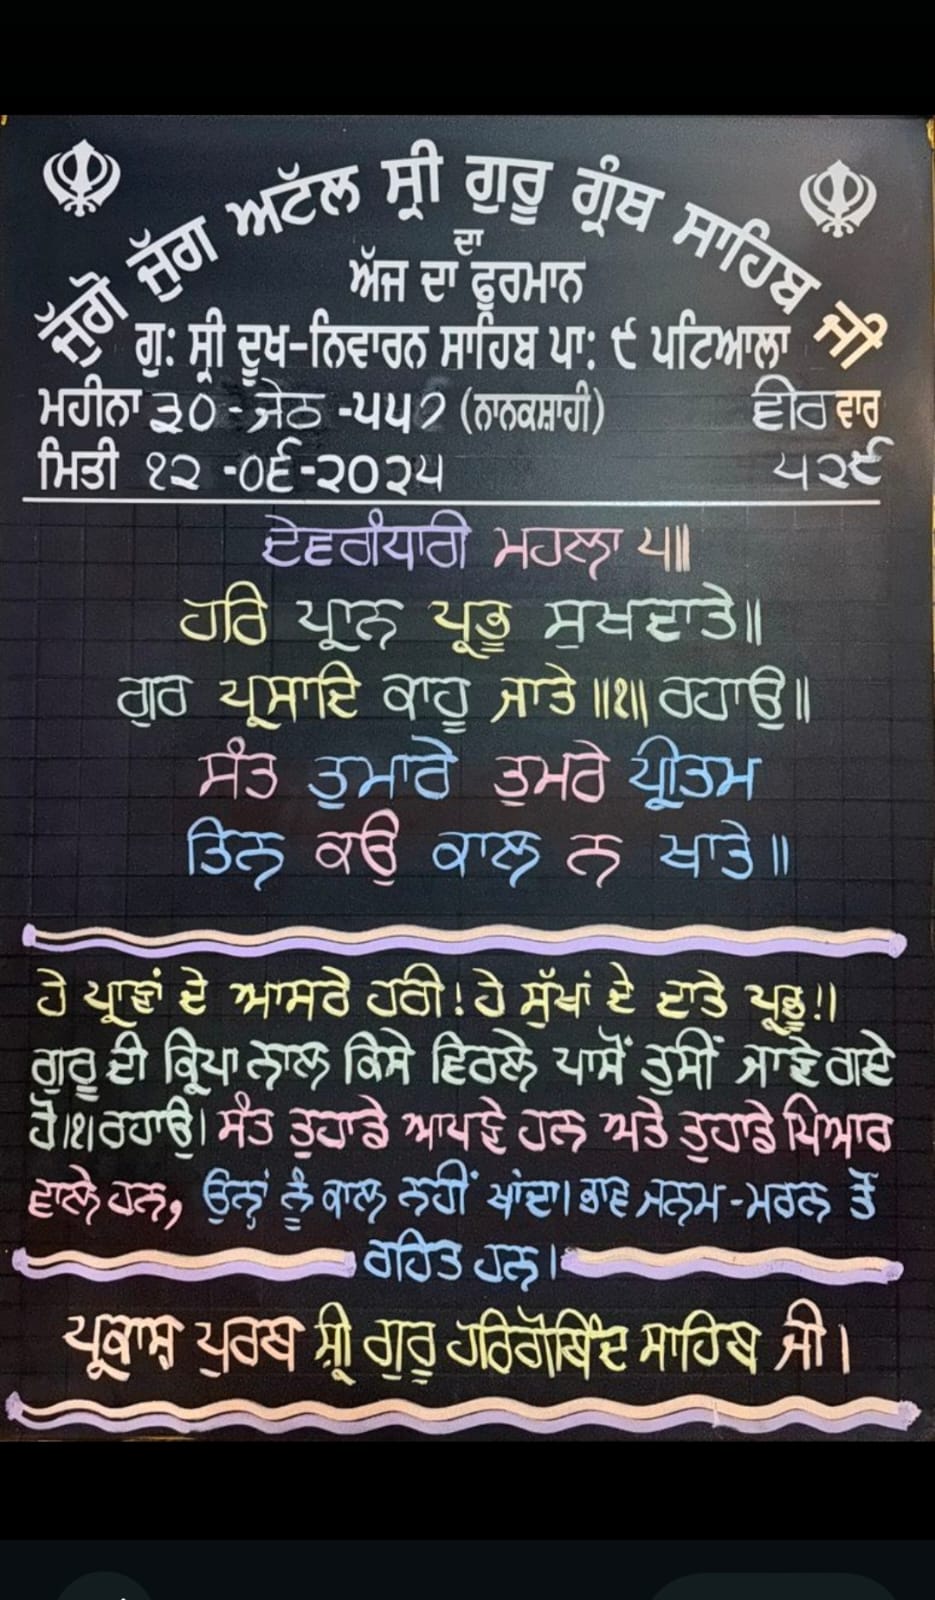 ਜੁੱਗੋ ਜੁੱਗ ਅਟੱਲ ਸ੍ਰੀ ਗੁਰੂ ਗ੍ਰੰਥ ਸਾਹਿਬ ਜੀ
ਦਾ
ਅੱਜ ਦਾ ਫੂਰਮਾਨ
ਗੁ: ਸ੍ਰੀ ਦੂਖ-ਨਿਵਾਰਨ ਸਾਹਿਬ ਪਾ: ੯ ਪਟਿਆਲਾ
ਮਹੀਨਾ ੩੦ - ਜੇਠ -੫੫੭ (ਨਾਨਕਸ਼ਾਹੀ) ਵੀਰਵਾਰ
ਮਿਤੀ ੧੨ -੦੬-੨੦੨੫ ੫੨੯
ਦੇਵਗੰਧਾਰੀ ਮਹਲਾ ੫॥
ਹਰਿ ਪ੍ਰਾਨ ਪ੍ਰਭੂ ਸੁਖਦਾਤੇ॥
ਗੁਰ ਪ੍ਰਸਾਦਿ ਕਾਹੂ ਜਾਤੇ ॥੧॥ ਰਹਾਉ॥
ਸੰਤ ਤੁਮਾਰੇ ਤੁਮਰੇ ਪ੍ਰੀਤਮ
ਤਿਨ ਕਉ ਕਾਲ ਨ ਖਾਤੇ॥
ਹੇ ਪ੍ਰਾਣਾਂ ਦੇ ਆਸਰੇ ਹਰੀ! ਹੇ ਸੁੱਖਾਂ ਦੇ ਦਾਤੇ ਪ੍ਰਭੂ!।
ਗੁਰੂ ਦੀ ਕ੍ਰਿਪਾ ਨਾਲ ਕਿਸੇ ਵਿਰਲੇ ਪਾਸੋਂ ਤੁਸੀਂ ਜਾਣੇ ਗਏ
ਹੋ।੧।ਰਹਾਉ। ਸੰਤ ਤੁਹਾਡੇ ਆਪਣੇ ਹਨ ਅਤੇ ਤੁਹਾਡੇ ਪਿਆਰ
ਵਾਲੇ ਹਨ, ਉਨ੍ਹਾਂ ਨੂੰ ਕਾਲ ਨਹੀਂ ਖਾਂਦਾ। ਭਾਵ ਜਨਮ-ਮਰਨ ਤੋਂ
ਰਹਿਤ ਹਨ।
ਪ੍ਰਕਾਸ਼ ਪੁਰਬ ਸ਼੍ਰੀ ਗੁਰੂ ਹਰਿਗੋਬਿੰਦ ਸਾਹਿਬ ਜੀ।